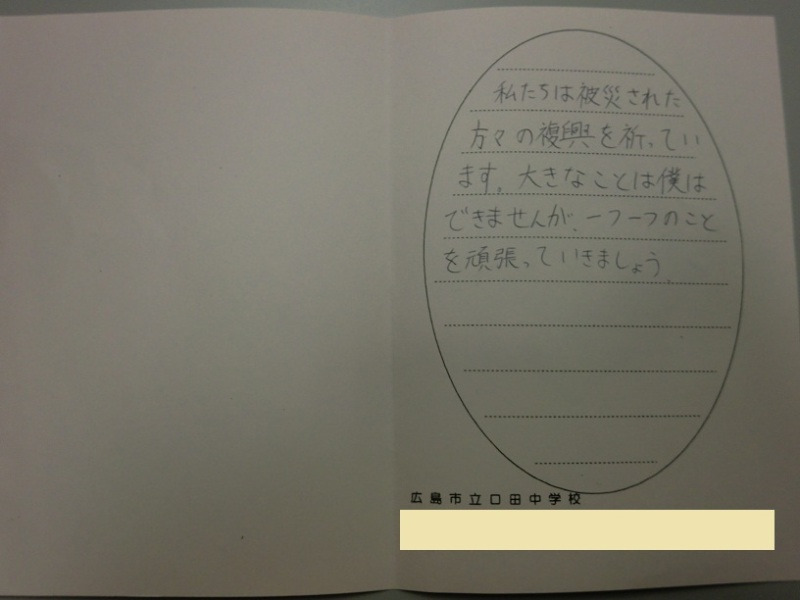 私たちは被災された
方々の複興を祈ってい
ます。大きなことは僕は
できませんが、一つ一つのこと
を頑張っていきましょう。
広島市立口田中学校